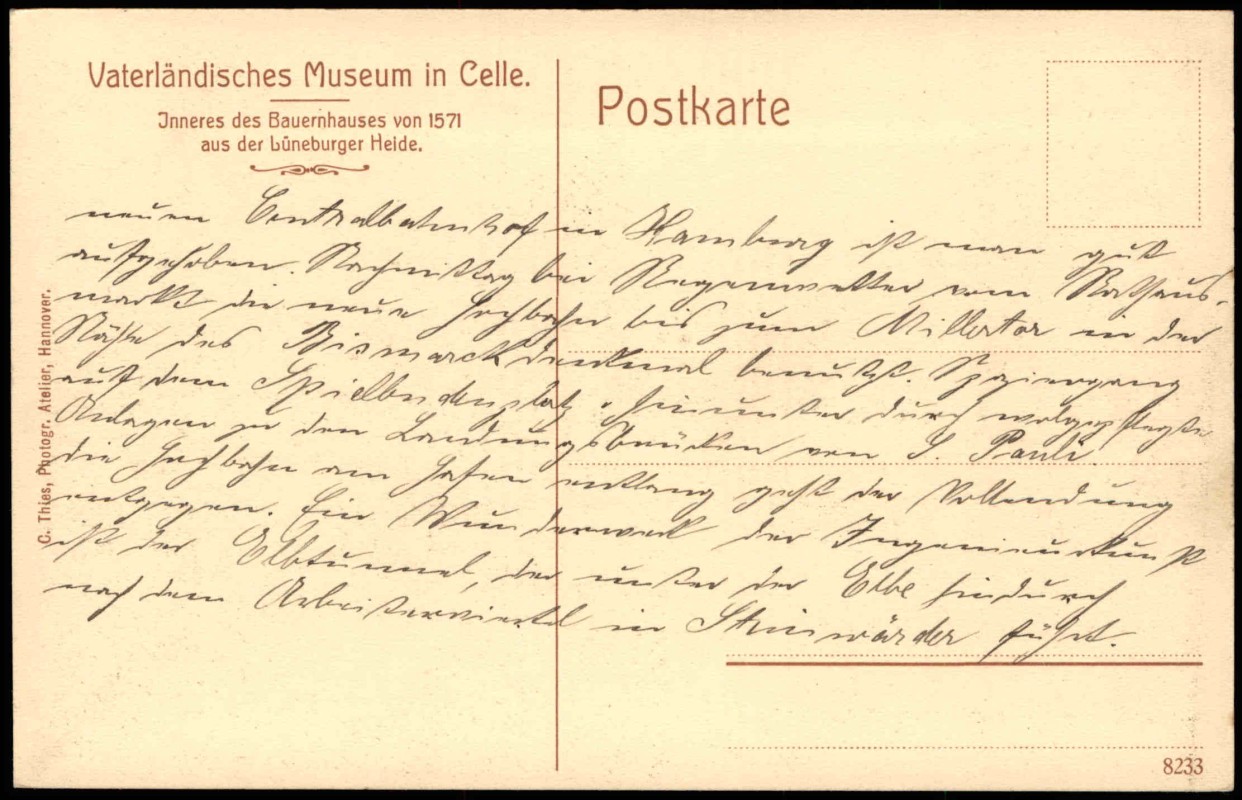 Vaterländisches Museum in Celle.
Inneres des Bauernhauses von 1571
aus der Lüneburger Heide.
Postkarte
neuen Centralbahnhof in Hamburg ist man gut
aufgehoben. Nachmittag bei Regenwetter vom Rathaus-
markt die neue Hochbahn bis zum Millertor in der
Nähe des Bismarckdenkmal benutzt. Spaziergang
auf dem Spielbudenplatz, hinunter durch wolgepflegte
Anlagen zu den Landungsbrücken von S. Pauli.
die Hochbahn am Hafen entlang geht der Vollendung
entgegen. Ein Wunderwerk der Ingenieurkunst
ist der Elbtunnel, der unter der Elbe hindurch
nach dem Arbeiterviertel in Steinwärder führt.
C. Thies, Photogr. Atelier, Hannover.
8233